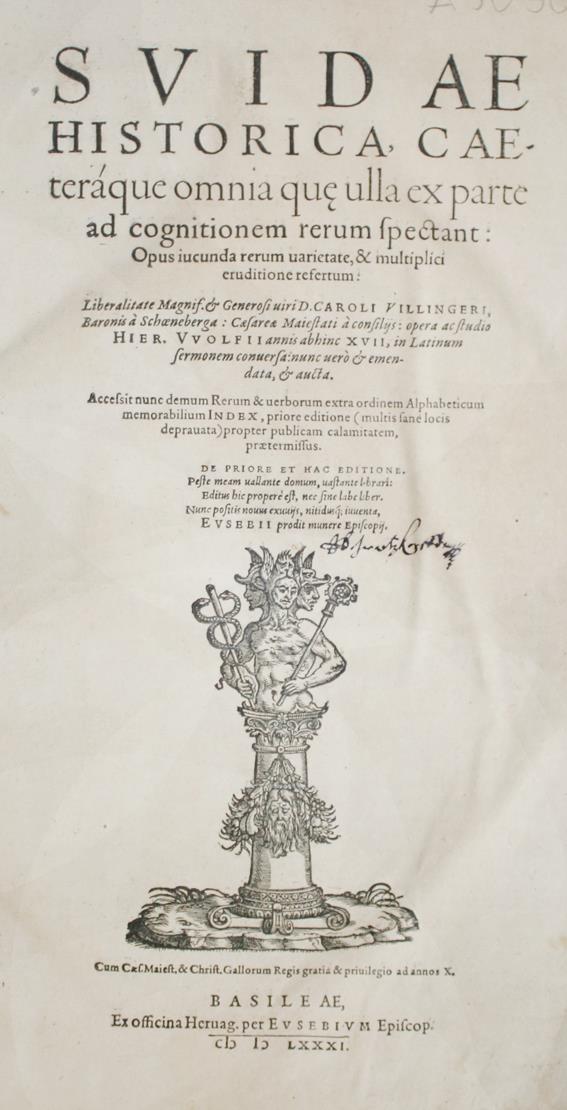 SVIDAE
HISTORICA, CAE-
teráque omnia quę ulla ex parte
ad cognitionem rerum ſpectant:
Opus iucunda rerum uarietate, & multiplici
eruditione refertum:
Liberalitate Magnif. & Generoſi uiri D. CAROLI VILLINGERI,
Baronis à Schœneberga: Cæſareæ Maieſtati à conſilijs: opera ac ſtudio
HIER. VVOLFII annis abhinc XVII, in Latinum
ſermonem conuerſa: nunc uerò & emen-
data, & aucta.
Acceſsit nunc demum Rerum & uerborum extra ordinem Alphabeticum
memorabilium INDEX, priore editione (multis ſane locis
deprauata) propter publicam calamitatem,
prætermiſſus.
DE PRIORE ET HAC EDITIONE.
Peſte meam uallante domum, uaſtante librarî:
Editus hic properè eſt, nec ſine labe liber.
Nunc poſitis nouus exuuijs, nitidusq́; iuuenta,
EVSEBII prodit munere Epiſcopij.
Cum Cæſ. Maieſt. & Chriſt. Gallorum Regis gratia & priuilegio ad annos X.
BASILEAE,
Ex officina Heruag. per EVSEBIVM Epiſcop.
cIɔ Iɔ LXXXI.